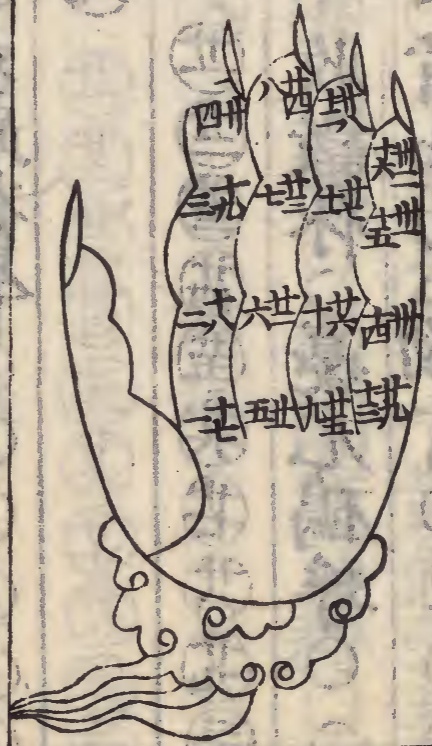 四廿
八廿四
十二廿八
十六卅二
三十九
七廿三
十一廿七
十五卅一
二十八
六廿二
十廿六
十四卅
一十七
五廿一
九廿五
十三廿九